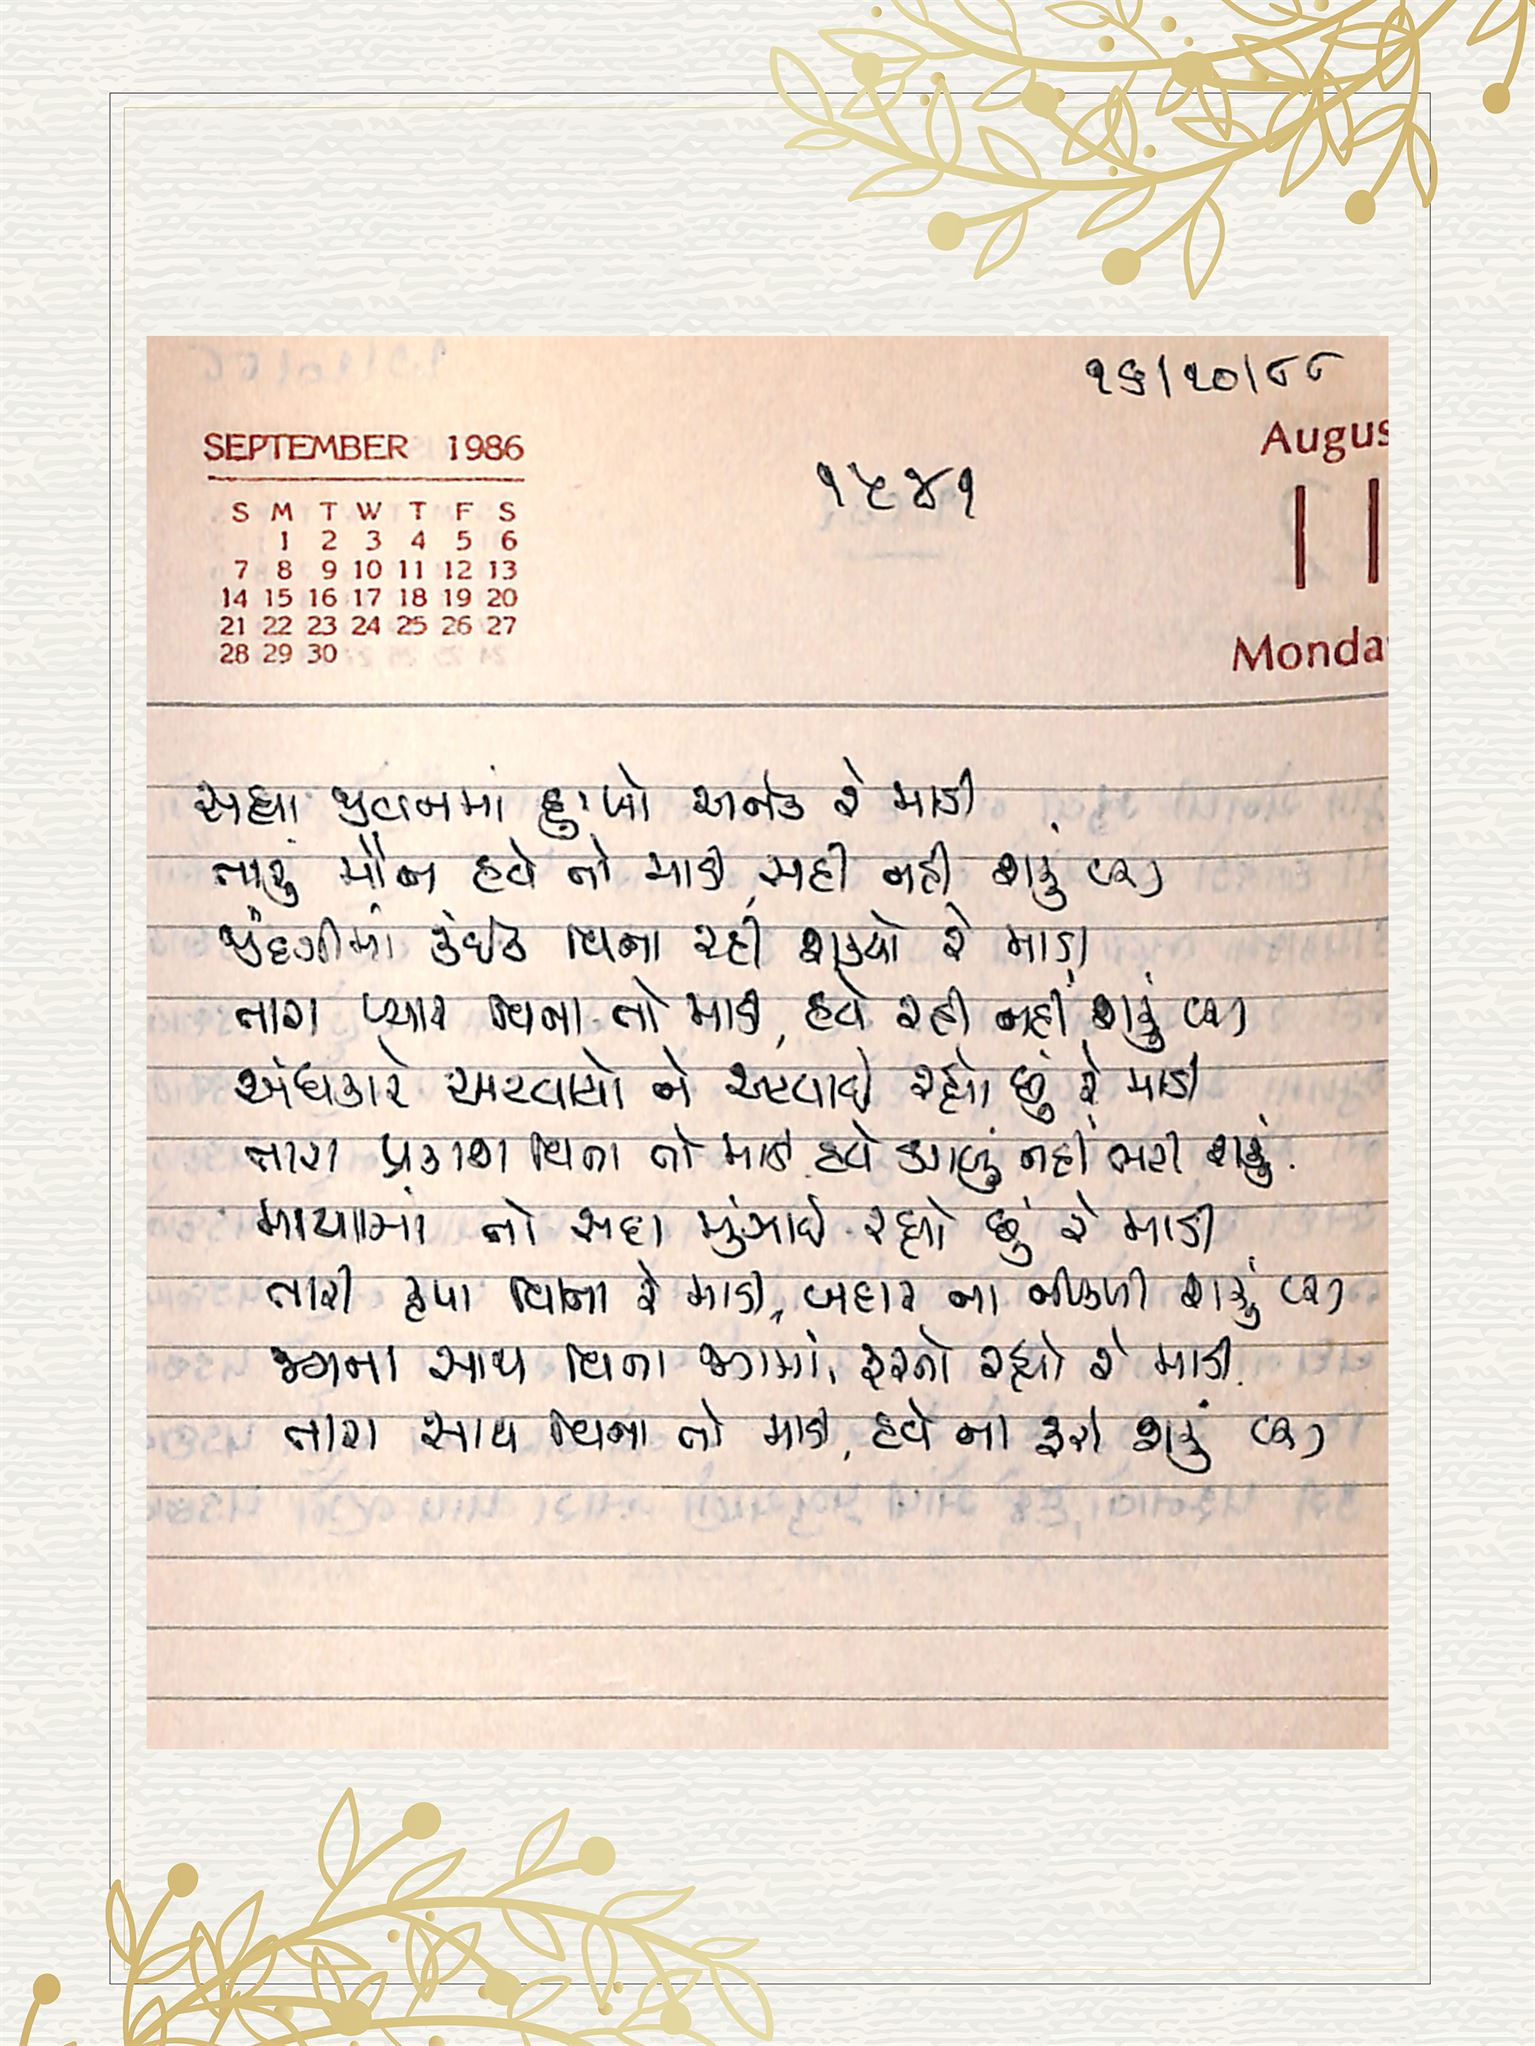 ૧૬/૧૦/૮૮
SEPTEMBER 1986
Augus
૧૫૪૧
11
S M T W T F S
1 2 3 4 5 6
7 8 9 10 11 12 13
14 15 16 17 18 19 20
21 22 23 24 25 26 27
28 29 30
Monda
સહ્યાં જીવનમાં દુઃખો અનંત રે માડી
તારું મૌન હવે તો માડી, સહી નહીં શકું (૨)
જીંદગીમાં કંઈક વિના રહી શક્યો રે માડી
તારા પ્યાર વિના તો માડી, હવે રહી નહીં શકું (૨)
અંધકારે અટવાયો ને અટવાઈ રહ્યો છું રે માડી
તારા પ્રકાશ વિના તો માડી હવે ડગલું નહીં ભરી શકું.
માયામાં તો સદા મુંઝાઈ રહ્યો છું રે માડી
તારી કૃપા વિના રે માડી, બહાર ના નીકળી શકું (૨)
જગના સાથ વિના જગમાં, ફરતો રહ્યો રે માડી.
તારા સાથ વિના તો માડી, હવે ના ફરી શકું (૨)